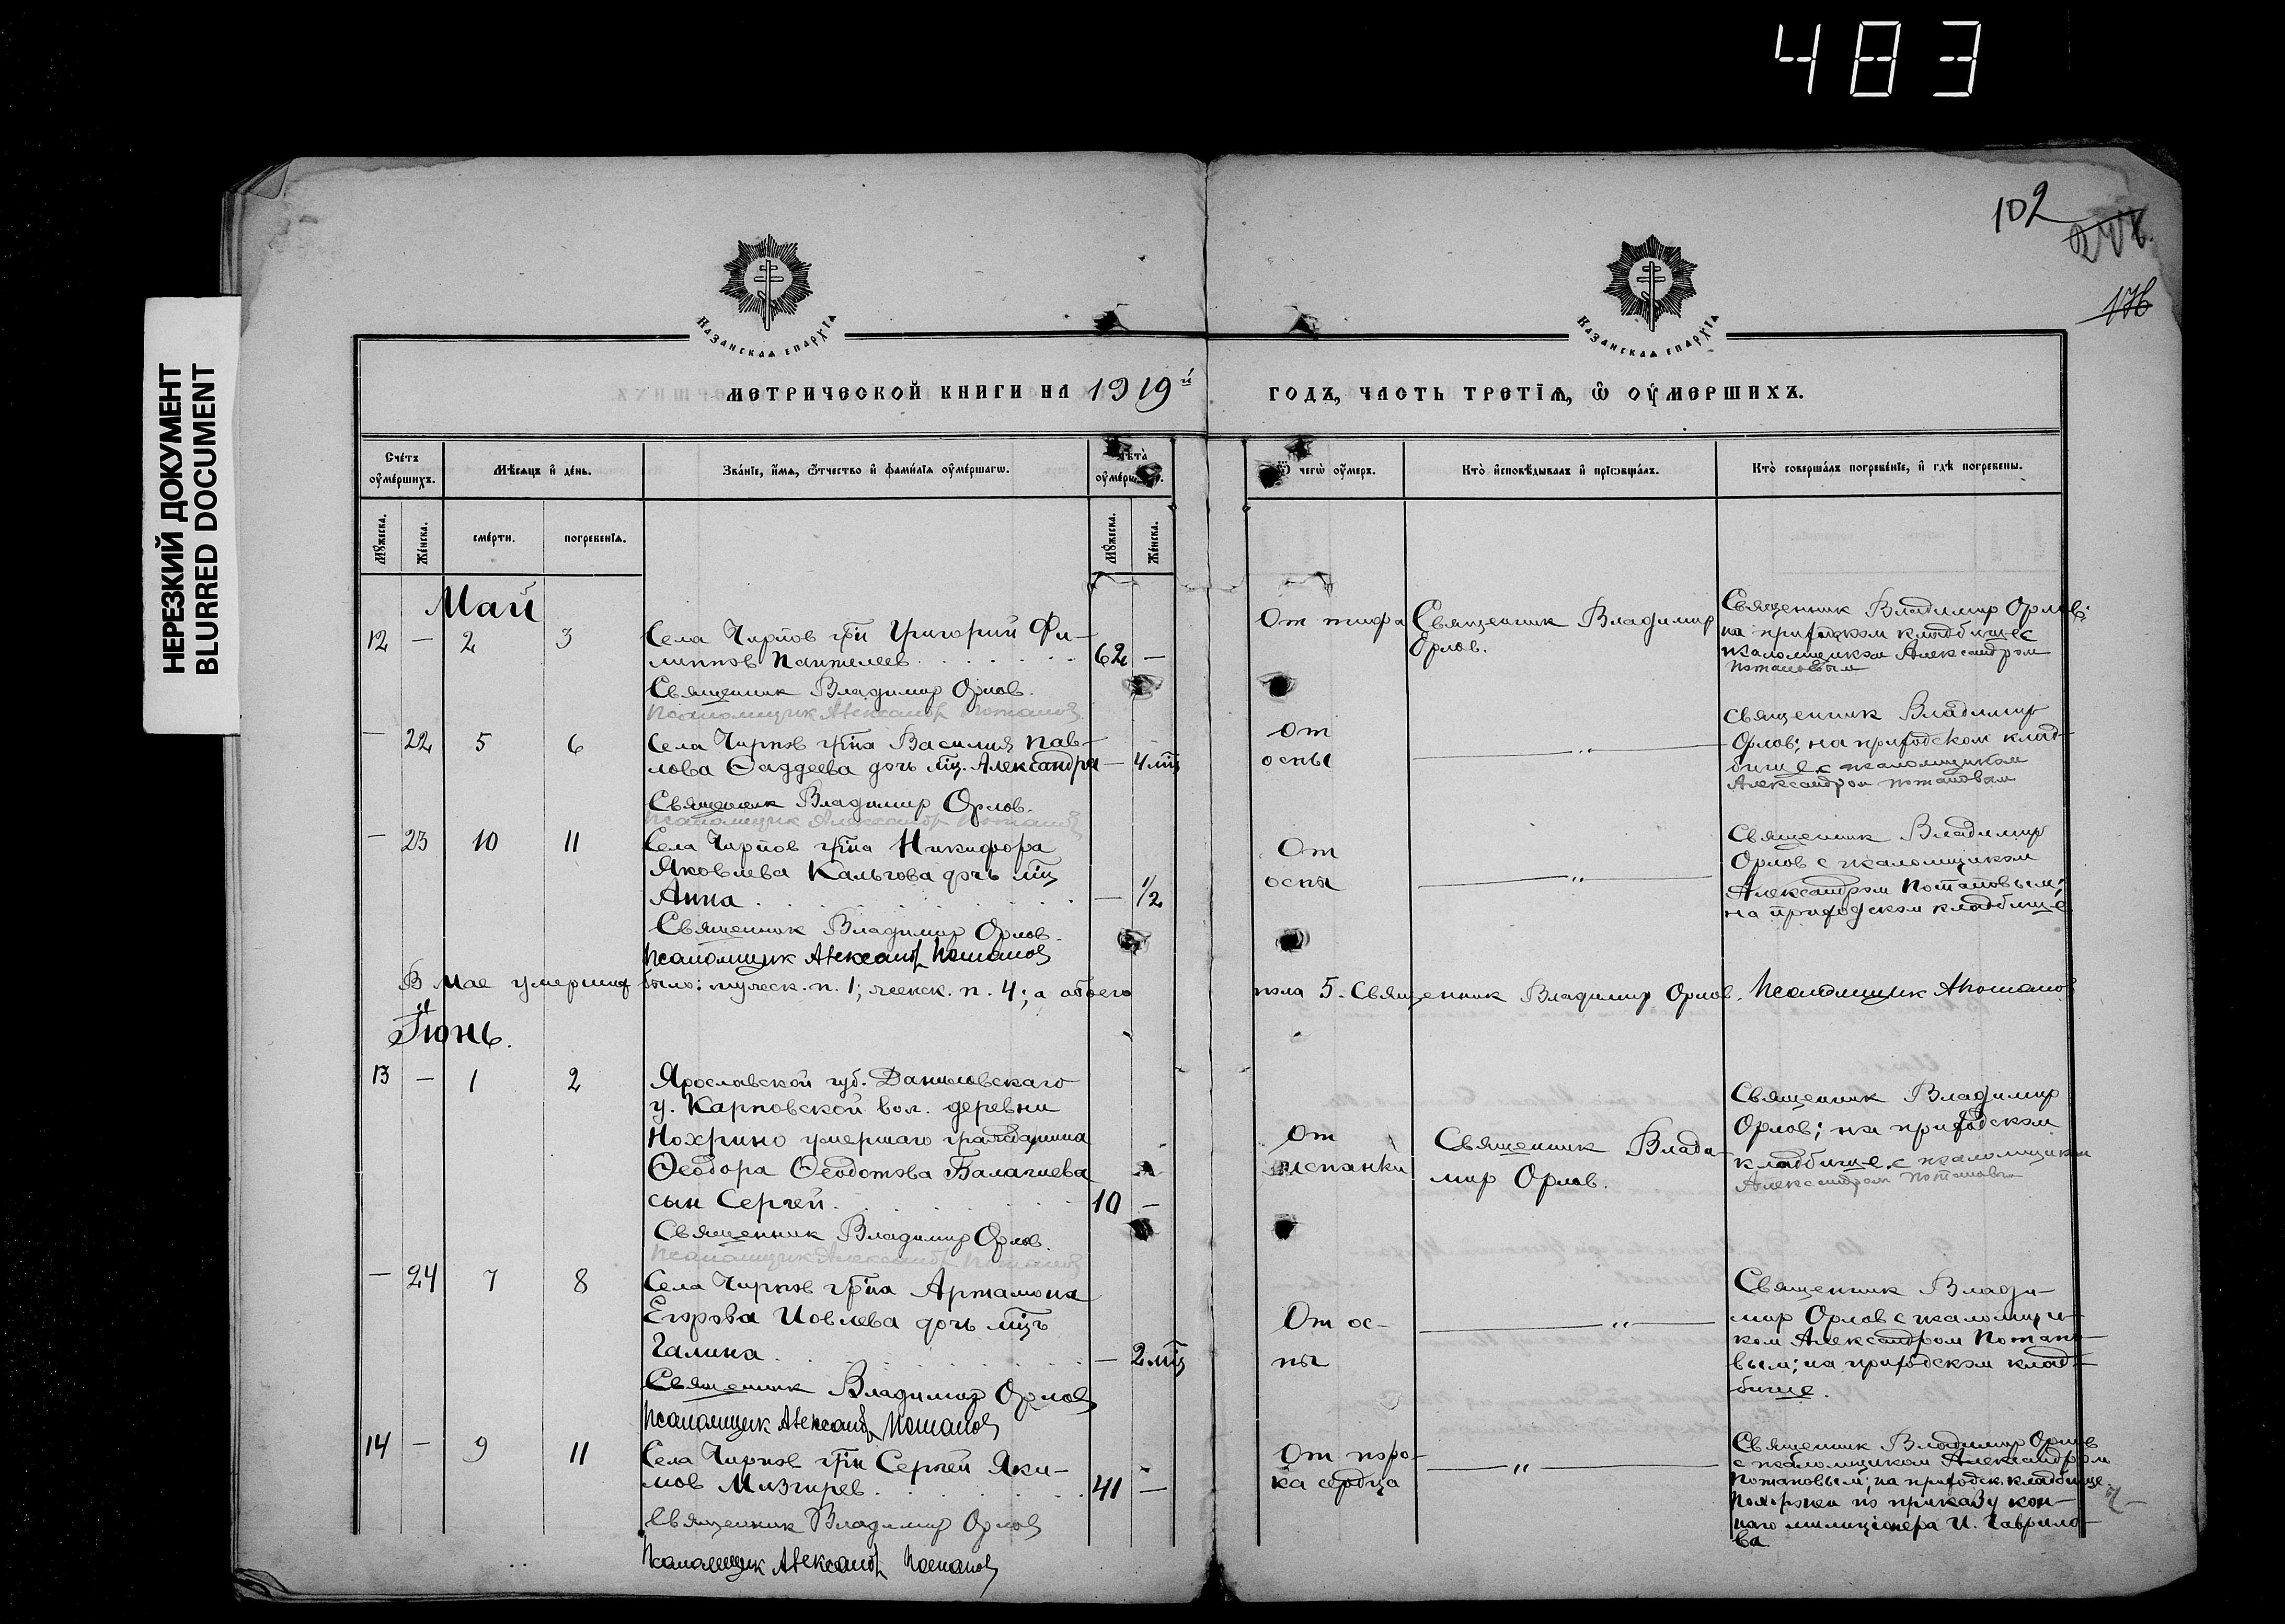 483
НЕРЕЗКИЙ ДОКУМЕНТ
BLURRED DOCUMENT
102
176
КАЗАНСКАѦ ЕПАРХІѦ
КАЗАНСКАѦ ЕПАРХІѦ
МЕТРИЧЕСКОЙ КНИГИ НА 1919й ГОДЪ, ЧАСТЬ ТРЕТІѦ, Ѡ ОУМЕРШИХЪ.
Счетъ оумершихъ.
Мѣсяцъ и день.
Званіе, имя, отчество и фамилія оумершагѡ.
Лѣта оумершагѡ.
Ѿ чегѡ оумеръ.
Кто исповѣдывалъ и пріобщалъ.
Кто совершалъ погребеніе, и гдѣ погребены.
Мужеска.
Женска.
смерти.
погребенія.
Мужеска.
Женска.
Май
12 — 2 3
Села Чирпов гр̃н Григорий Фи-
липпов Пантелеев 62 —
Священник Владимир Орлов.
Псаломщик Александр Потапов
От тифа
Священник Владимир
Орлов.
Священник Владимир Орлов;
на приходском кладбище с
псаломщиком Александром
Потаповым
— 22 5 6
Села Чирпов гр̃на Василия Пав-
лова Фаддеева дочь м̃ц. Александра — 4 м̃ц
Священник Владимир Орлов.
Псаломщик Александр Потапов
От
оспы
— " —
Священник Владимир
Орлов; на приходском клад-
бище с псаломщиком
Александром Потаповым
— 23 10 11
Села Чирпов гр̃на Никифора
Яковлева Кальгова дочь м̃ц
Анна — 1/2
Священник Владимир Орлов.
Псаломщик Александр Потапов
От
оспы
— " —
Священник Владимир
Орлов с псаломщиком
Александром Потаповым;
на приходском кладбище
В Мае умерших было: мужеск. п. 1; женск. п. 4; а обоего пола 5. Священник Владимир Орлов. Псаломщик А Потапов
Іюнь.
13 — 1 2
Ярославской губ. Даниловскаго
у. Карповской вол. деревни
Нохрино умершаго гражданина
Феодора Феодотова Балагиева
сын Сергей 10 —
Священник Владимир Орлов.
Псаломщик Александр Потапов
От
испанки
Священник Влади-
мир Орлов.
Священник Владимир
Орлов; на приходском
кладбище с псаломщиком
Александром Потаповым
— 24 7 8
Села Чирпов гр̃на Артамона
Егорова Иовлева дочь м̃цъ
Галина — 2 м̃ц
Священник Владимир Орлов
Псаломщик Александр Потапов
От ос-
пы
— " —
Священник Влади-
мир Орлов с псаломщи-
ком Александром Потапо-
вым; на приходском клад-
бище.
14 — 9 11
Села Чирпов гр̃н Сергей Яки-
мов Мизгирев 41 —
Священник Владимир Орлов
Псаломщик Александр Потапов
От поро-
ка сердца
— " —
Священник Владимир Орлов
с псаломщиком Александром
Потаповым; на приходск. кладбище
Похоронен по приказу кон-
наго милиціонера И. Гаврило-
ва.